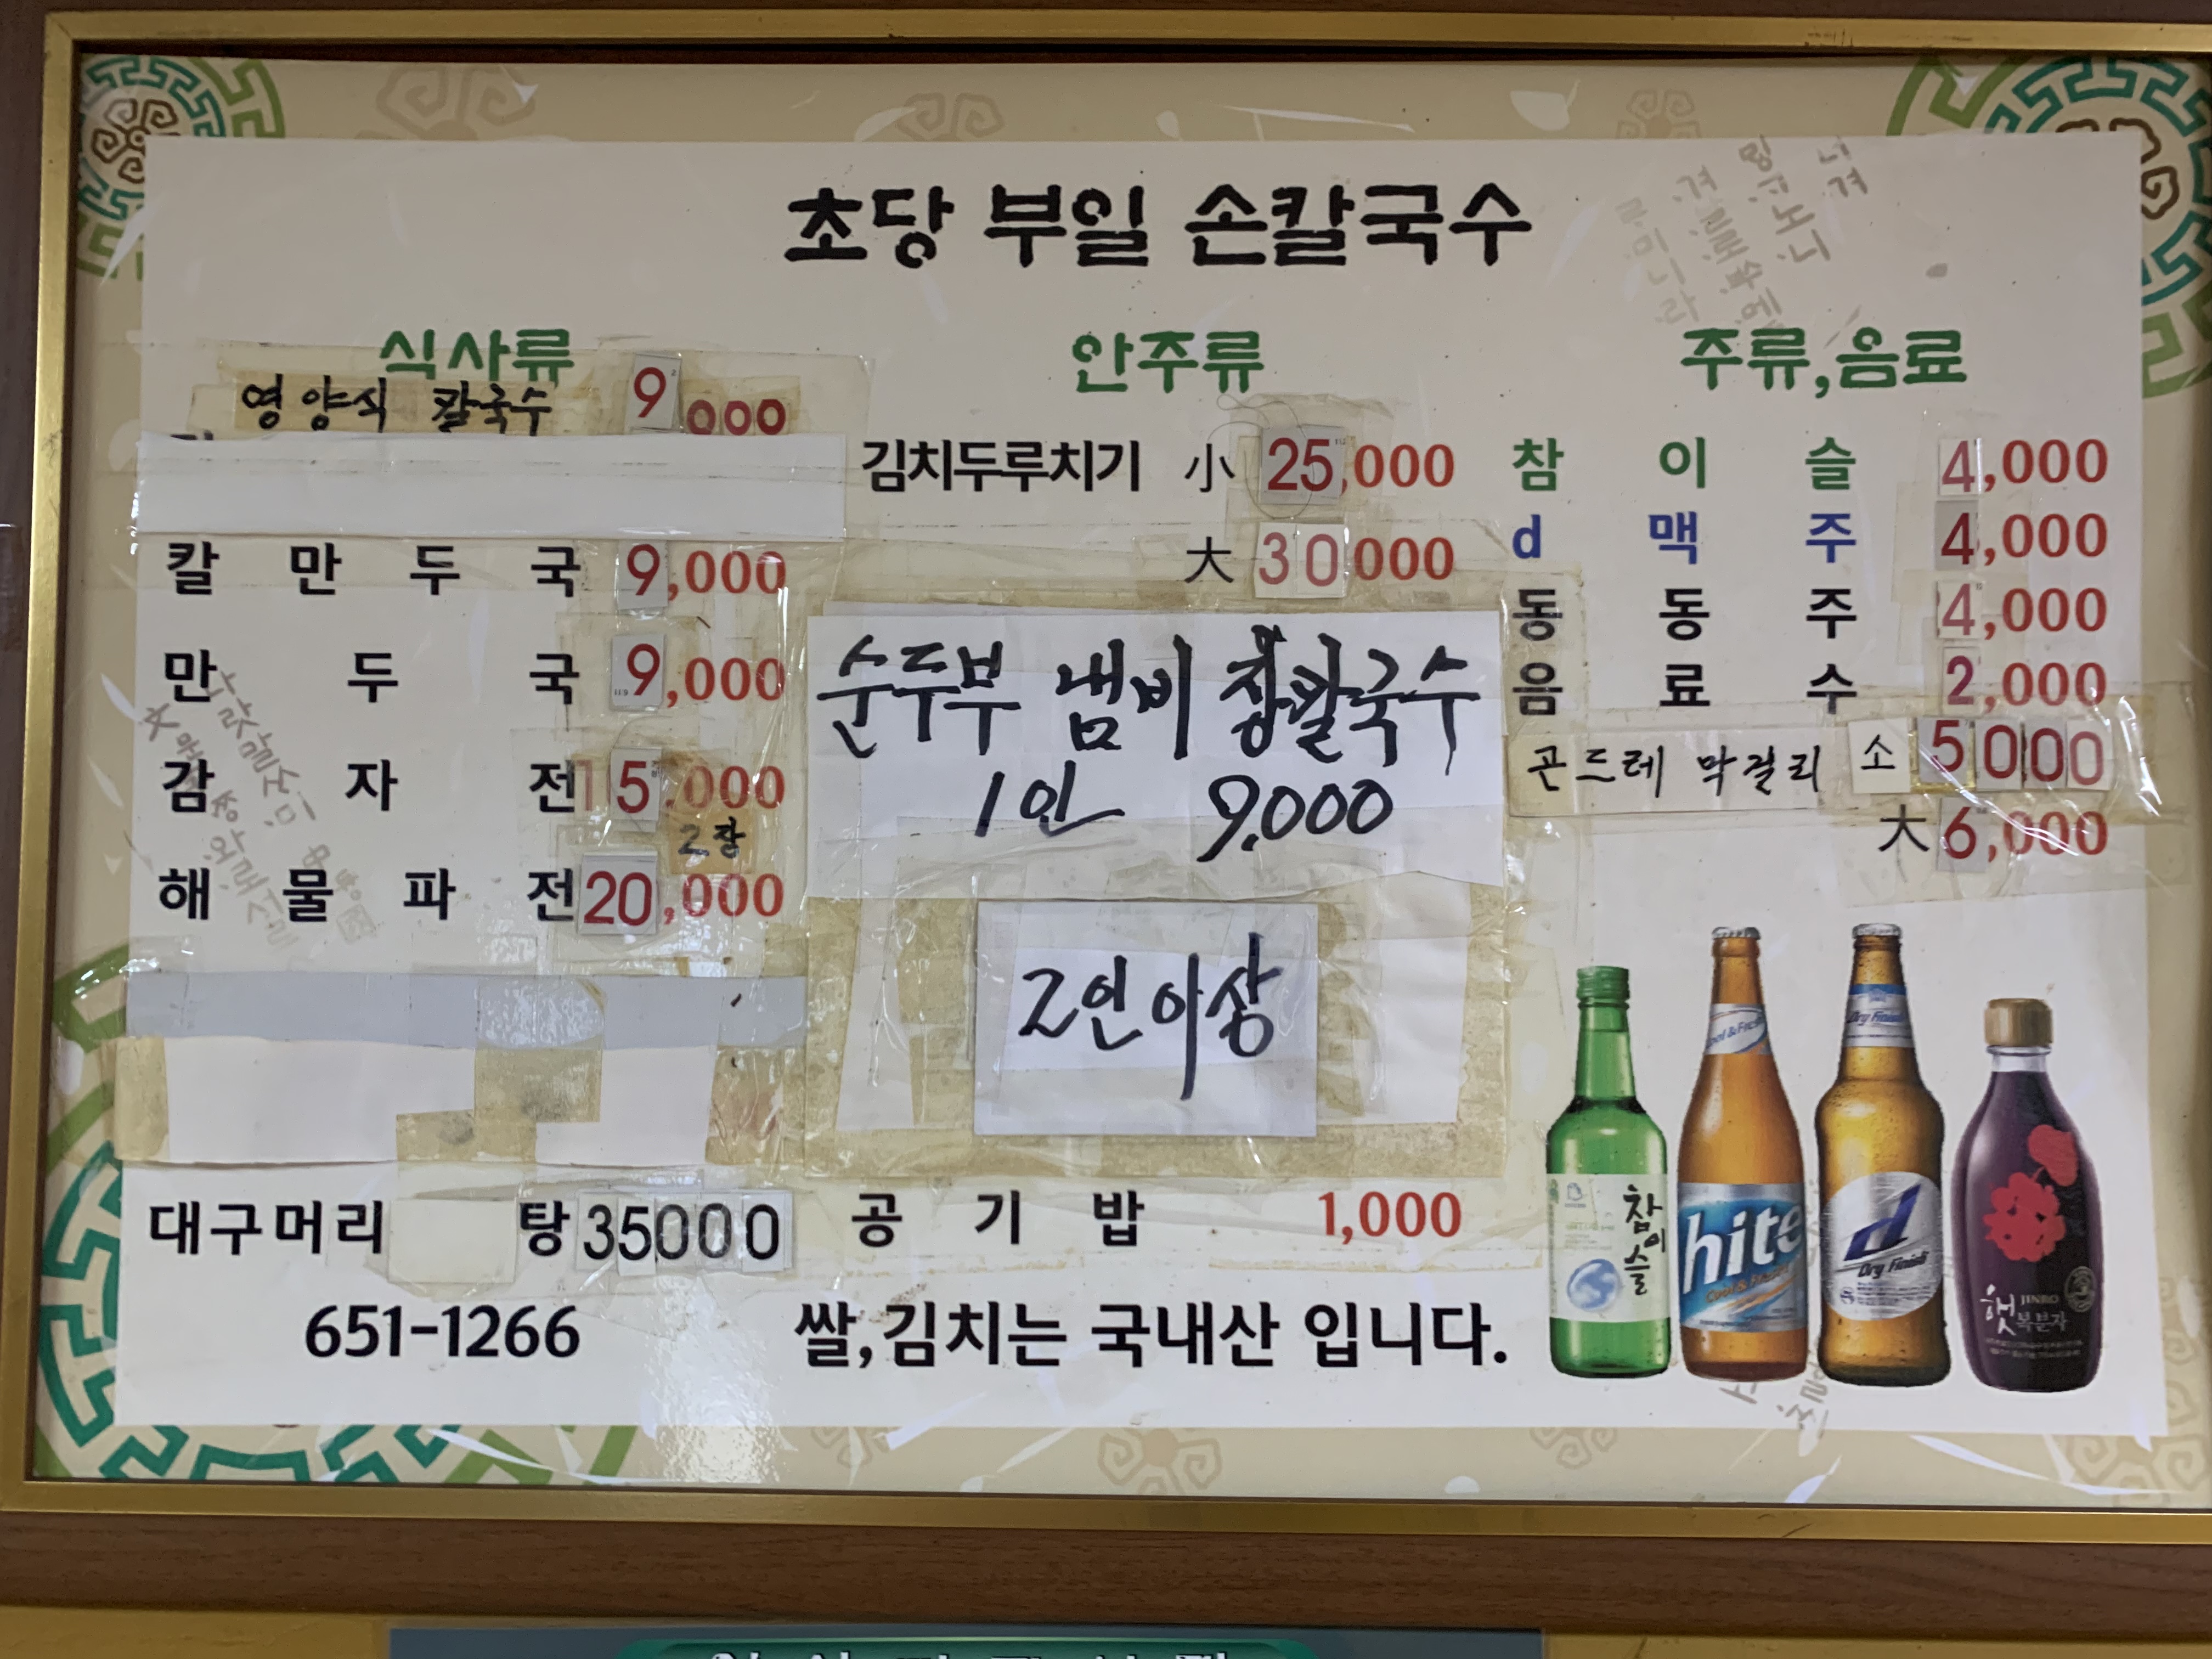 초당 부일 손칼국수
식사류
영양식 칼국수 9,000
칼만두국 9,000
만두국 9,000
감자전 15,000
2장
해물파전 20,000
대구머리 탕 35000
651-1266
안주류
김치두루치기 小 25,000
大 30000
순두부 냄비 장칼국수
1인 9,000
2인이상
공기밥 1,000
쌀,김치는 국내산 입니다.
주류,음료
참이슬 4,000
d맥주 4,000
동동주 4,000
음료수 2,000
곤드레 막걸리 소 5000
大 6,000
참이슬
hite
Dry Finish
d
Dry Finish
햇 JINRO
복분자